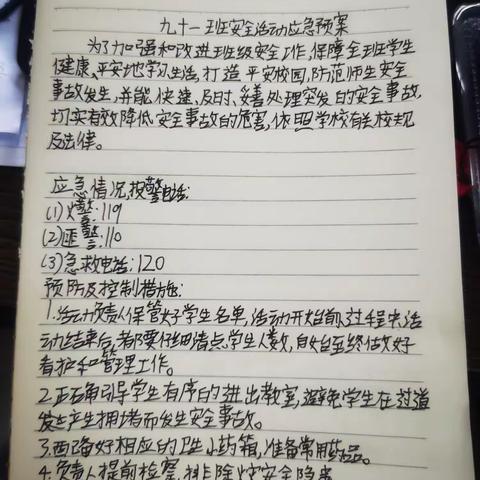 九十一班安全活动应急预案
为了加强和改进班级安全工作,保障全班学生
健康、平安地学习生活,打造平安校园,防范师生安全
事故发生,并能快速、及时、妥善处理突发的安全事故,
切实有效降低安全事故的危害,依照学校有关校规
及法律。
应急情况报警电话:
(1)火警:119
(2)匪警:110
(3)急救电话:120
预防及控制措施:
1.活动负责人保管好学生名单,活动开始前、过程中、活
动结束后,都要仔细清点学生人数,自始至终做好
看护和管理工作。
2.正确引导学生有序的进出教室,避免学生在过道
发生产生拥堵而发生安全事故。
3.配备好相应的卫生小药箱,准备常用药品。
4.负责人提前检察,排除安全隐患